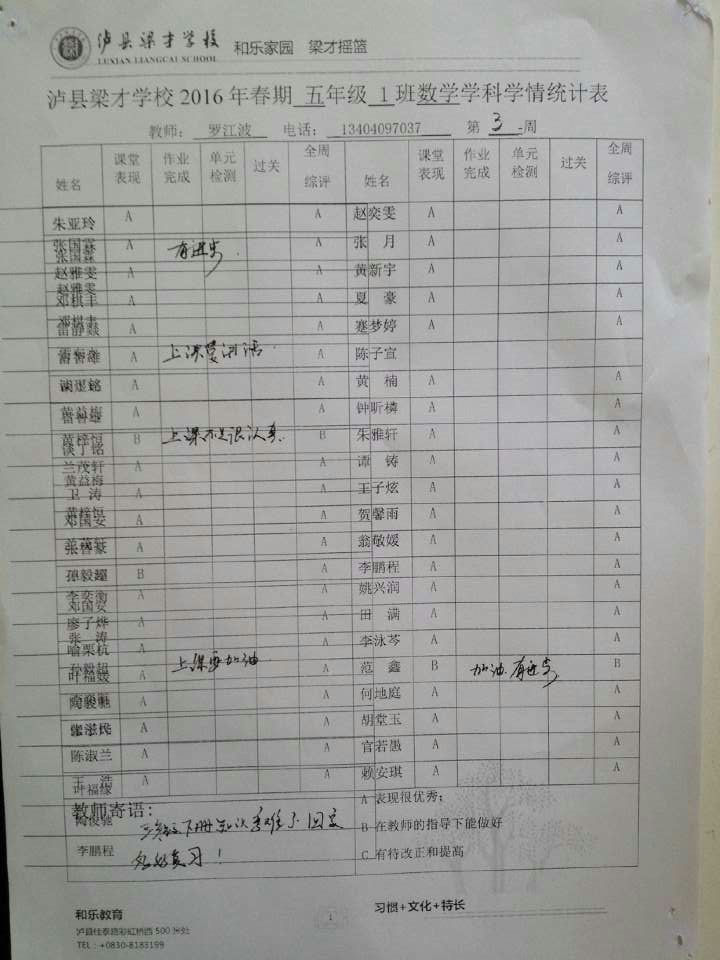 泸县梁才学校 和乐家园 梁才摇篮
LUXIAN LIANGCAI SCHOOL
泸县梁才学校 2016 年春期 五年级 1 班数学学科学情统计表
教师: 罗江波 电话: 13404097037 第 3 周
姓名 课堂表现 作业完成 单元检测 过关 全周综评 姓名 课堂表现 作业完成 单元检测 过关 全周综评
朱亚玲 A A 赵奕雯 A A
张国霖 A 有进步. A 张 月 A A
赵雅雯 A A 黄新宇 A A
邓棋丰 A A 夏 豪 A A
雷静燚 A A 蹇梦婷 A A
上课要 陈子宣
A A 黄 楠 A A
A A 钟昕橉 A A
黄梓恒 B 上课不是很认真. B 朱雅轩 A A
兰茂轩 A A 谭 铸 A A
黄益梅
卫 涛 A A 王子炫 A A
邓国安 A A 贺馨雨 A A
A A 翁敬媛 A A
孙毅超 B A 李鹏程 A A
李奕衡 A A 姚兴润 A A
邓国安
廖子烨 A A 田 满 A A
张 涛
喻栗杭 A A 李泳芩 A A
叶福媛 上课要加油 A 范 鑫 B 加油.有进步 B
陶骏驰 A A 何地庭 A A
A A 胡堂玉 A A
陈淑兰 A A 官若愚 A A
王 浩 A A 赖安琪 A A
叶福缘
教师寄语:
陶俊驰
李鹏程 复习!
A 表现很优秀;
B 在教师的指导下能做好
C 有待改正和提高
和乐教育 1 习惯+文化+特长
泸县佳泰路彩虹桥西 500 米处
TEL：+0830-8183199